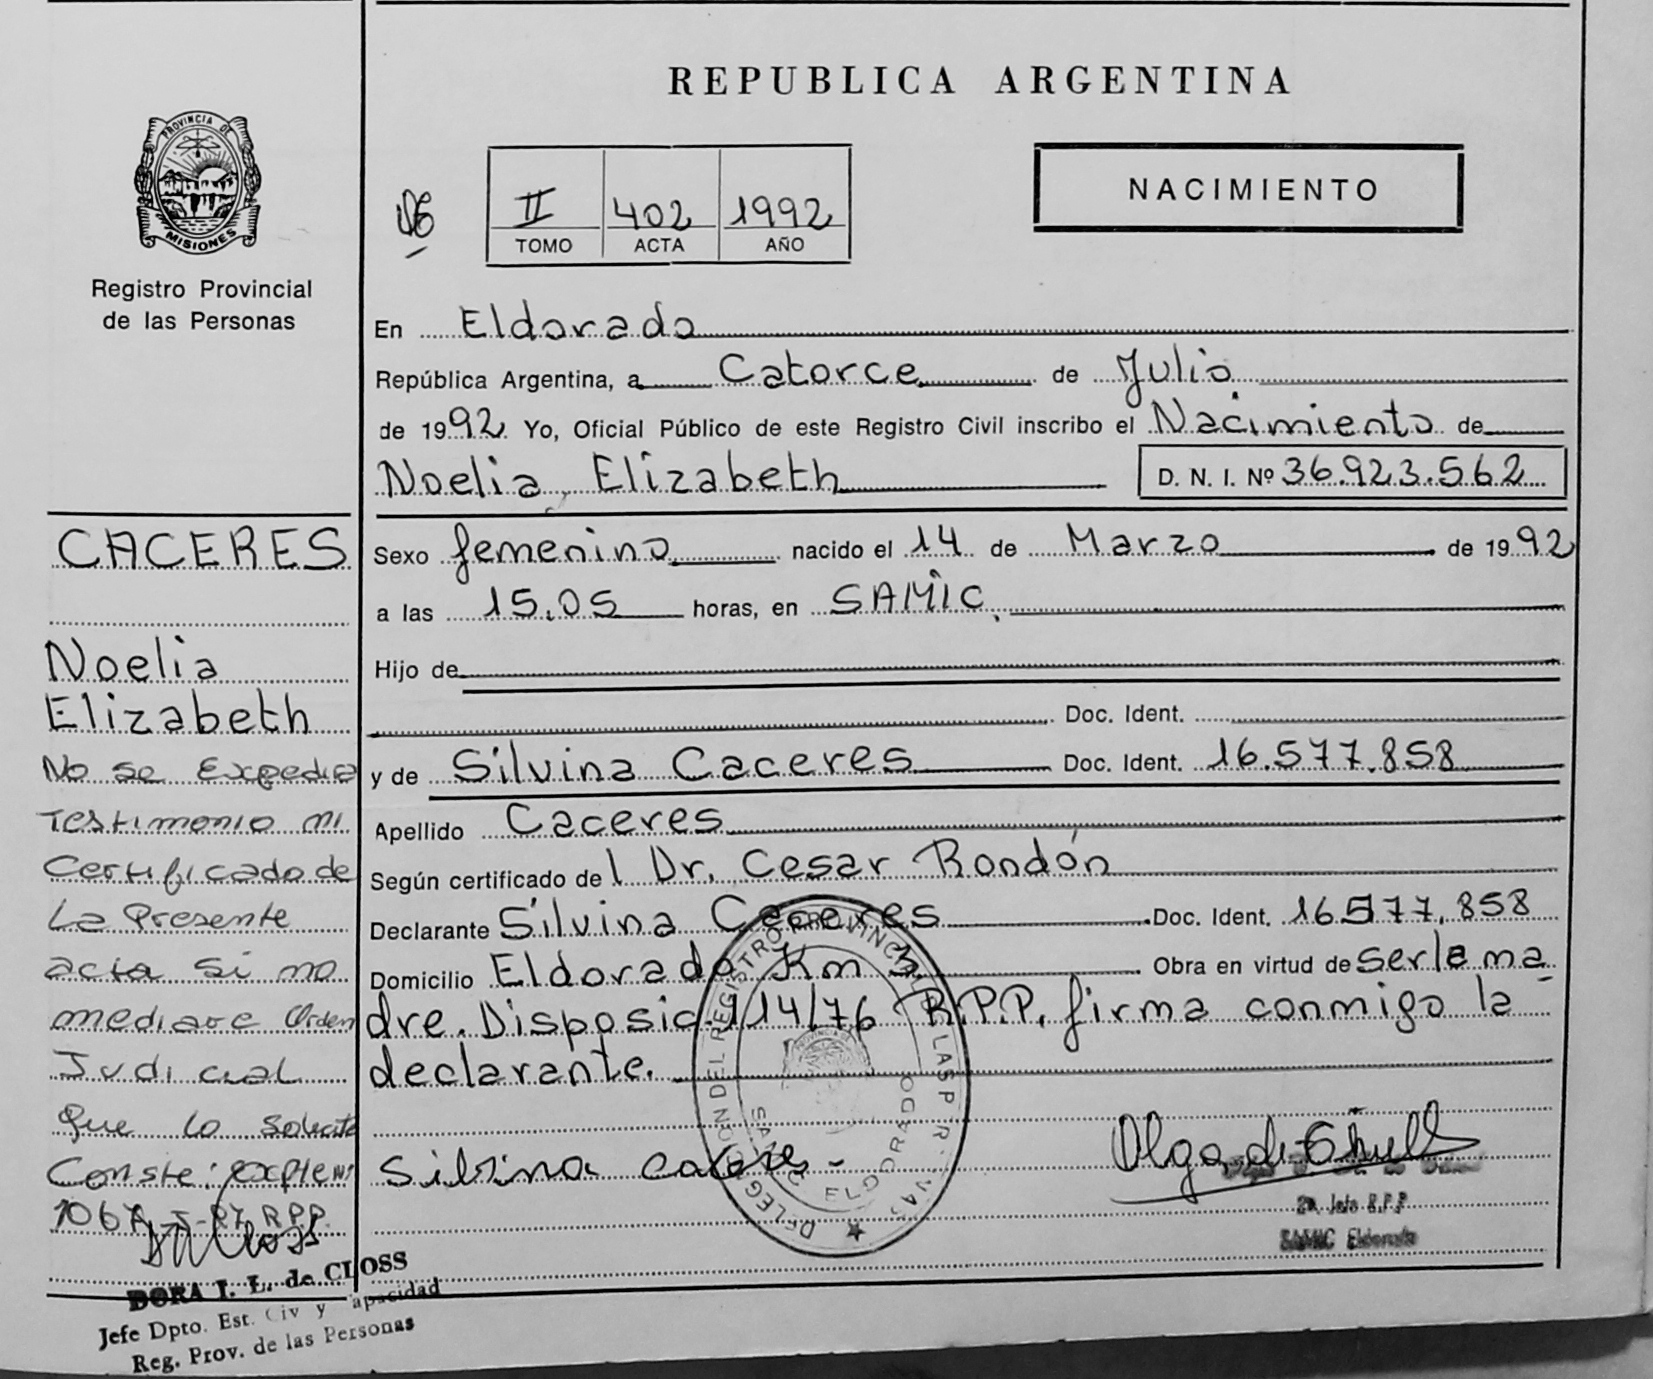 REPUBLICA ARGENTINA
PROVINCIA DE
MISIONES
Registro Provincial
de las Personas
II 402 1992
TOMO ACTA AÑO
NACIMIENTO
En Eldorado
República Argentina, a Catorce de Julio
de 1992 Yo, Oficial Público de este Registro Civil inscribo el Nacimiento de
Noelia Elizabeth D. N. I. Nº 36.923.562
Sexo femenino nacido el 14 de Marzo de 1992
a las 15.05 horas, en SAMIC.
Hijo de
Doc. Ident.
y de Silvina Caceres Doc. Ident. 16.577.858
Apellido Caceres
Según certificado del Dr. Cesar Rondón
Declarante Silvina Caceres Doc. Ident. 16.577.858
Domicilio Eldorado Km Obra en virtud de ser la ma
dre. Disposic. 114/76 R.P.P. firma conmigo la
declarante.
Silvina
Olga
2a. Jefe R.P.P
SAMIC Eldorado
CACERES
Noelia
Elizabeth
No se Expedia
Testimonio ni
Certificado de
La Presente
acta si no
mediare Orden
Judicial
que lo solicite
Conste:
R.P.P.
DORA I. L. de CLOSS
Jefe Dpto. Est. Civ y apacidad
Reg. Prov. de las Personas
DELEGACION DEL REGISTRO PROVINCIAL DE LAS PERSONAS
SAMIC ELDORADO